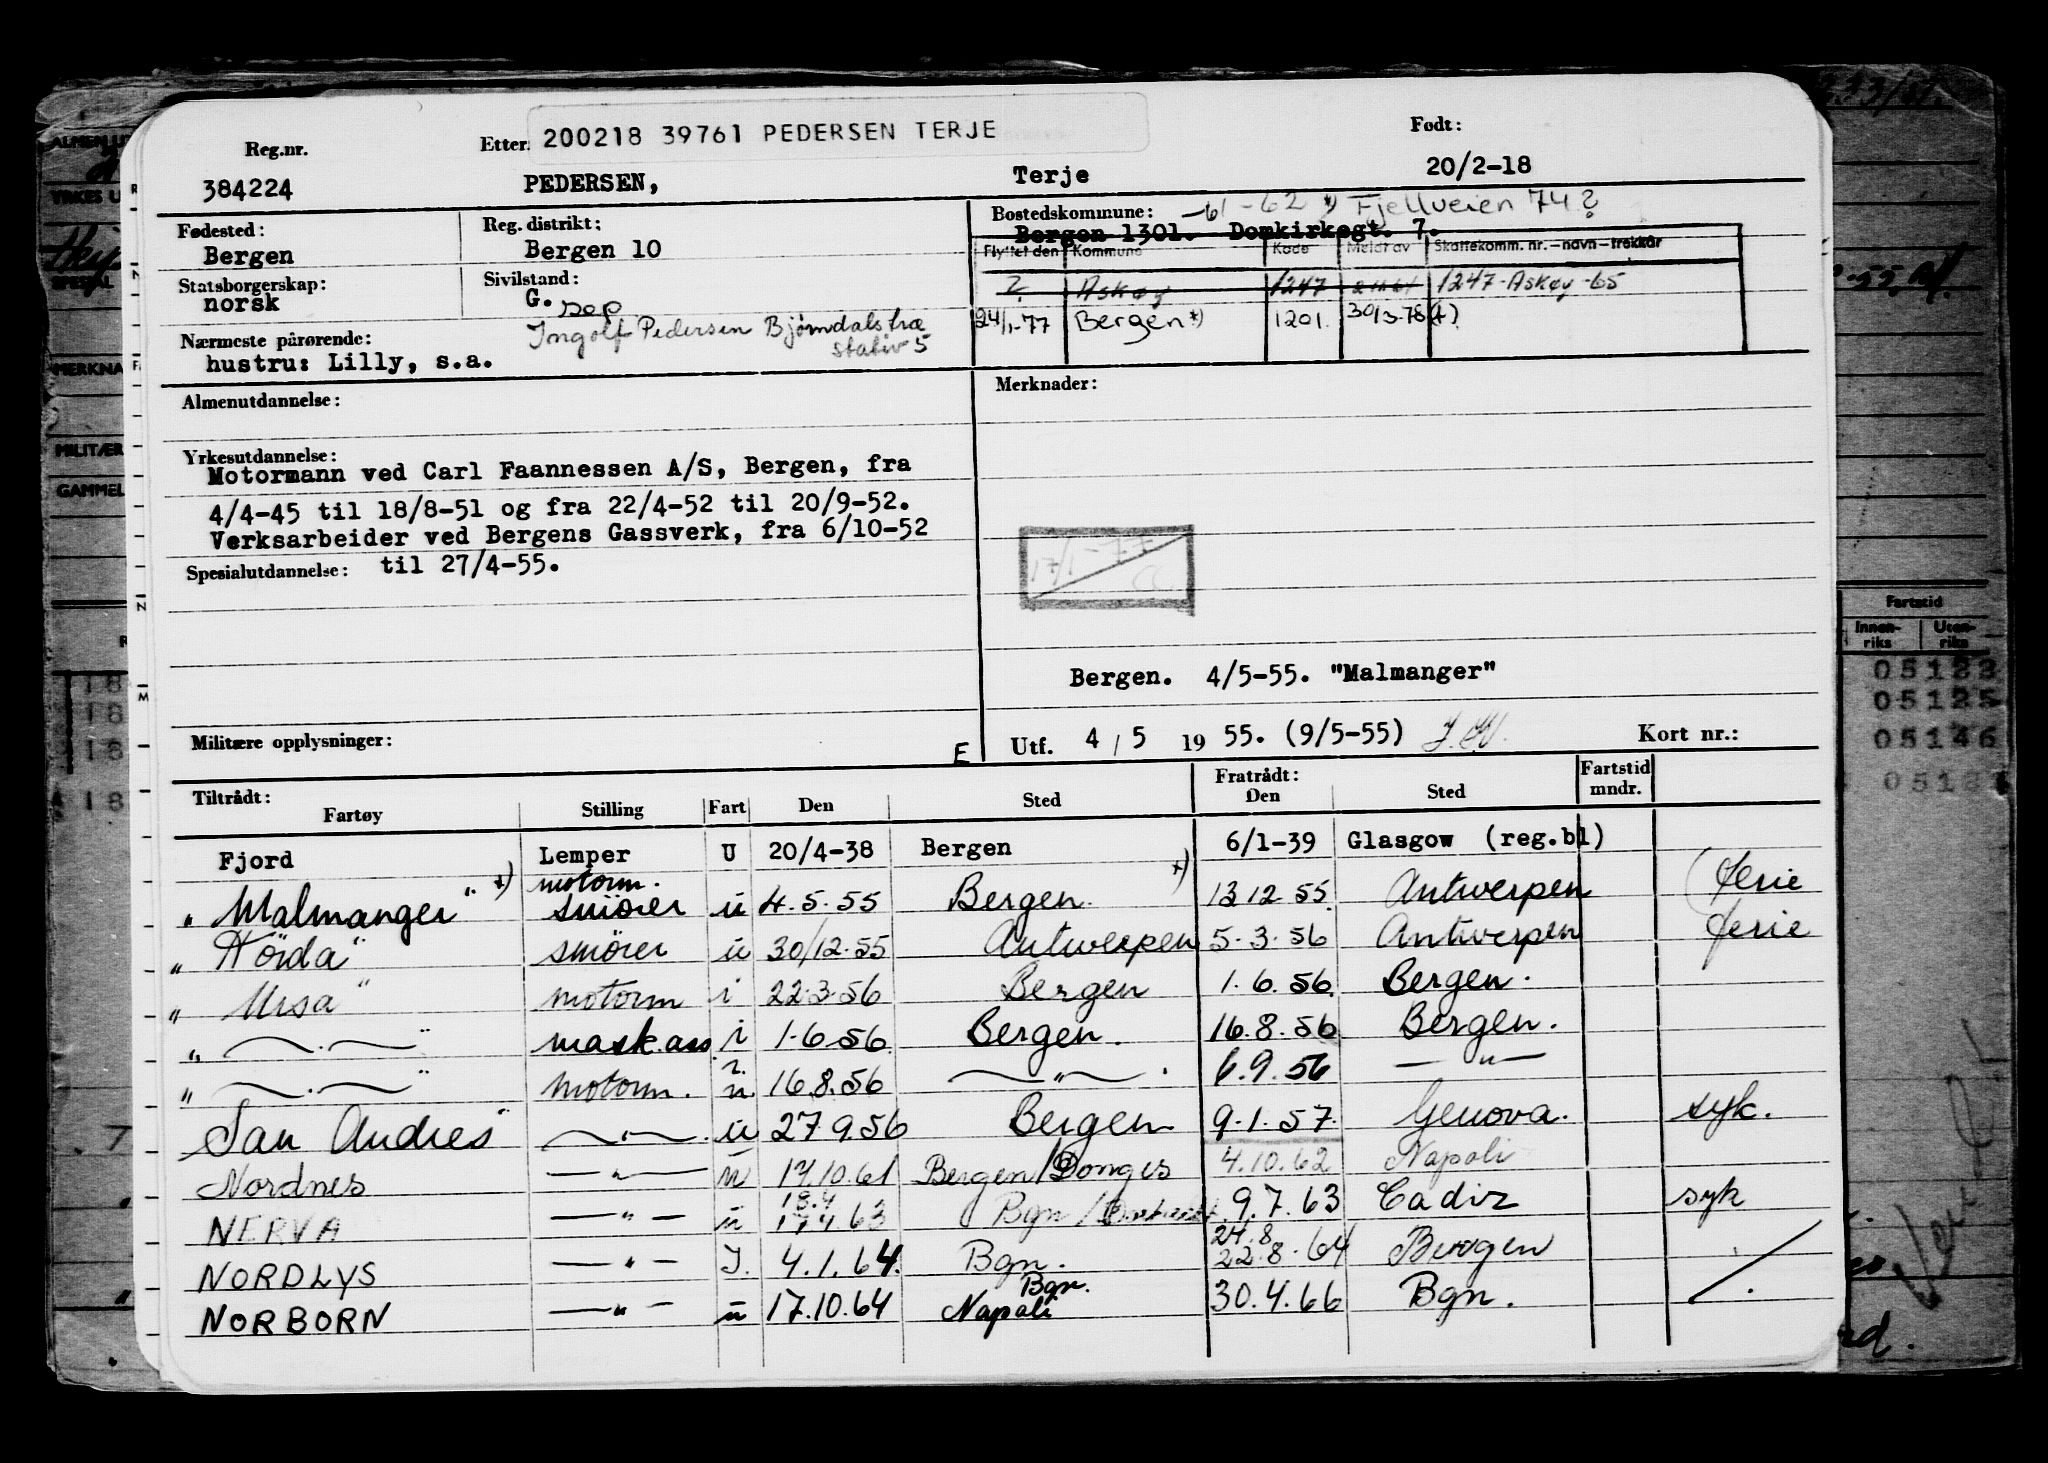 200218 39761 PEDERSEN TERJE
Reg.nr. Etter Født:
384224 PEDERSEN, Terje 20/2-18
Fødested: Reg. distrikt: Bostedskommune: -61-62 *) Fjellveien 74?
Bergen Bergen 10 Bergen 1301. Domkirkegt. 7.
Flyttet den Kommune Kode Meldt av Skattekomm. nr. – navn – trekkår
Statsborgerskap: Sivilstand: ? Askøy 1247 1247-Askøy-65
norsk G. sep
24/1-77 Bergen *) 1201. 30/3-78
Nærmeste pårørende: Ingolf Pedersen Bjørndalstræ
hustru: Lilly, s.a. stativ 5
Almenutdannelse: Merknader:
Yrkesutdannelse:
Motormann ved Carl Faannessen A/S, Bergen, fra
4/4-45 til 18/8-51 og fra 22/4-52 til 20/9-52.
Verksarbeider ved Bergens Gassverk, fra 6/10-52
Spesialutdannelse: til 27/4-55.
17/1-77
Bergen. 4/5-55. "Malmanger"
Militære opplysninger: E Utf. 4/5 1955. (9/5-55) Kort nr.:
Tiltrådt: Fratrådt: Fartstid
Fartøy Stilling Fart Den Sted Den Sted mndr.
Fjord Lemper U 20/4-38 Bergen 6/1-39 Glasgow (reg.bl)
motorm.
"Malmanger" *) smører u 4.5.55 Bergen. *) 13 12 55. Antwerpen (ferie
"Hörda" smører u 30/12.55 Antwerpen 5.3.56 Antwerpen ferie
"Ursa" motorm i 22.3.56 Bergen 1.6.56. Bergen.
" — . — " mask.ass. i 1.6.56. Bergen. 16.8.56 Bergen.
" — . — " motorm. i. u. 16.8.56 — " — . 6.9.56 — " —
San Andres — " — . u 27.9.56 Bergen 9.1.57. Genova. syk.
Nordnes — " — u 14.10.61 Bergen/Donges 4.10.62 Napoli
18.4
NERVA — " — u 17.4.63 Bgn / 9.7.63 Cadiz syk
24.8
NORDLYS — " — I. 4.1.64. Bgn. 22.8.64 Bergen
Bgn.
NORBORN — " — u 17.10.64 Napoli 30.4.66 Bgn.
Fartstid
Innen-riks Uten-riks
05123
05125
05146
MERKNA
MILITÆR
GAMMEL